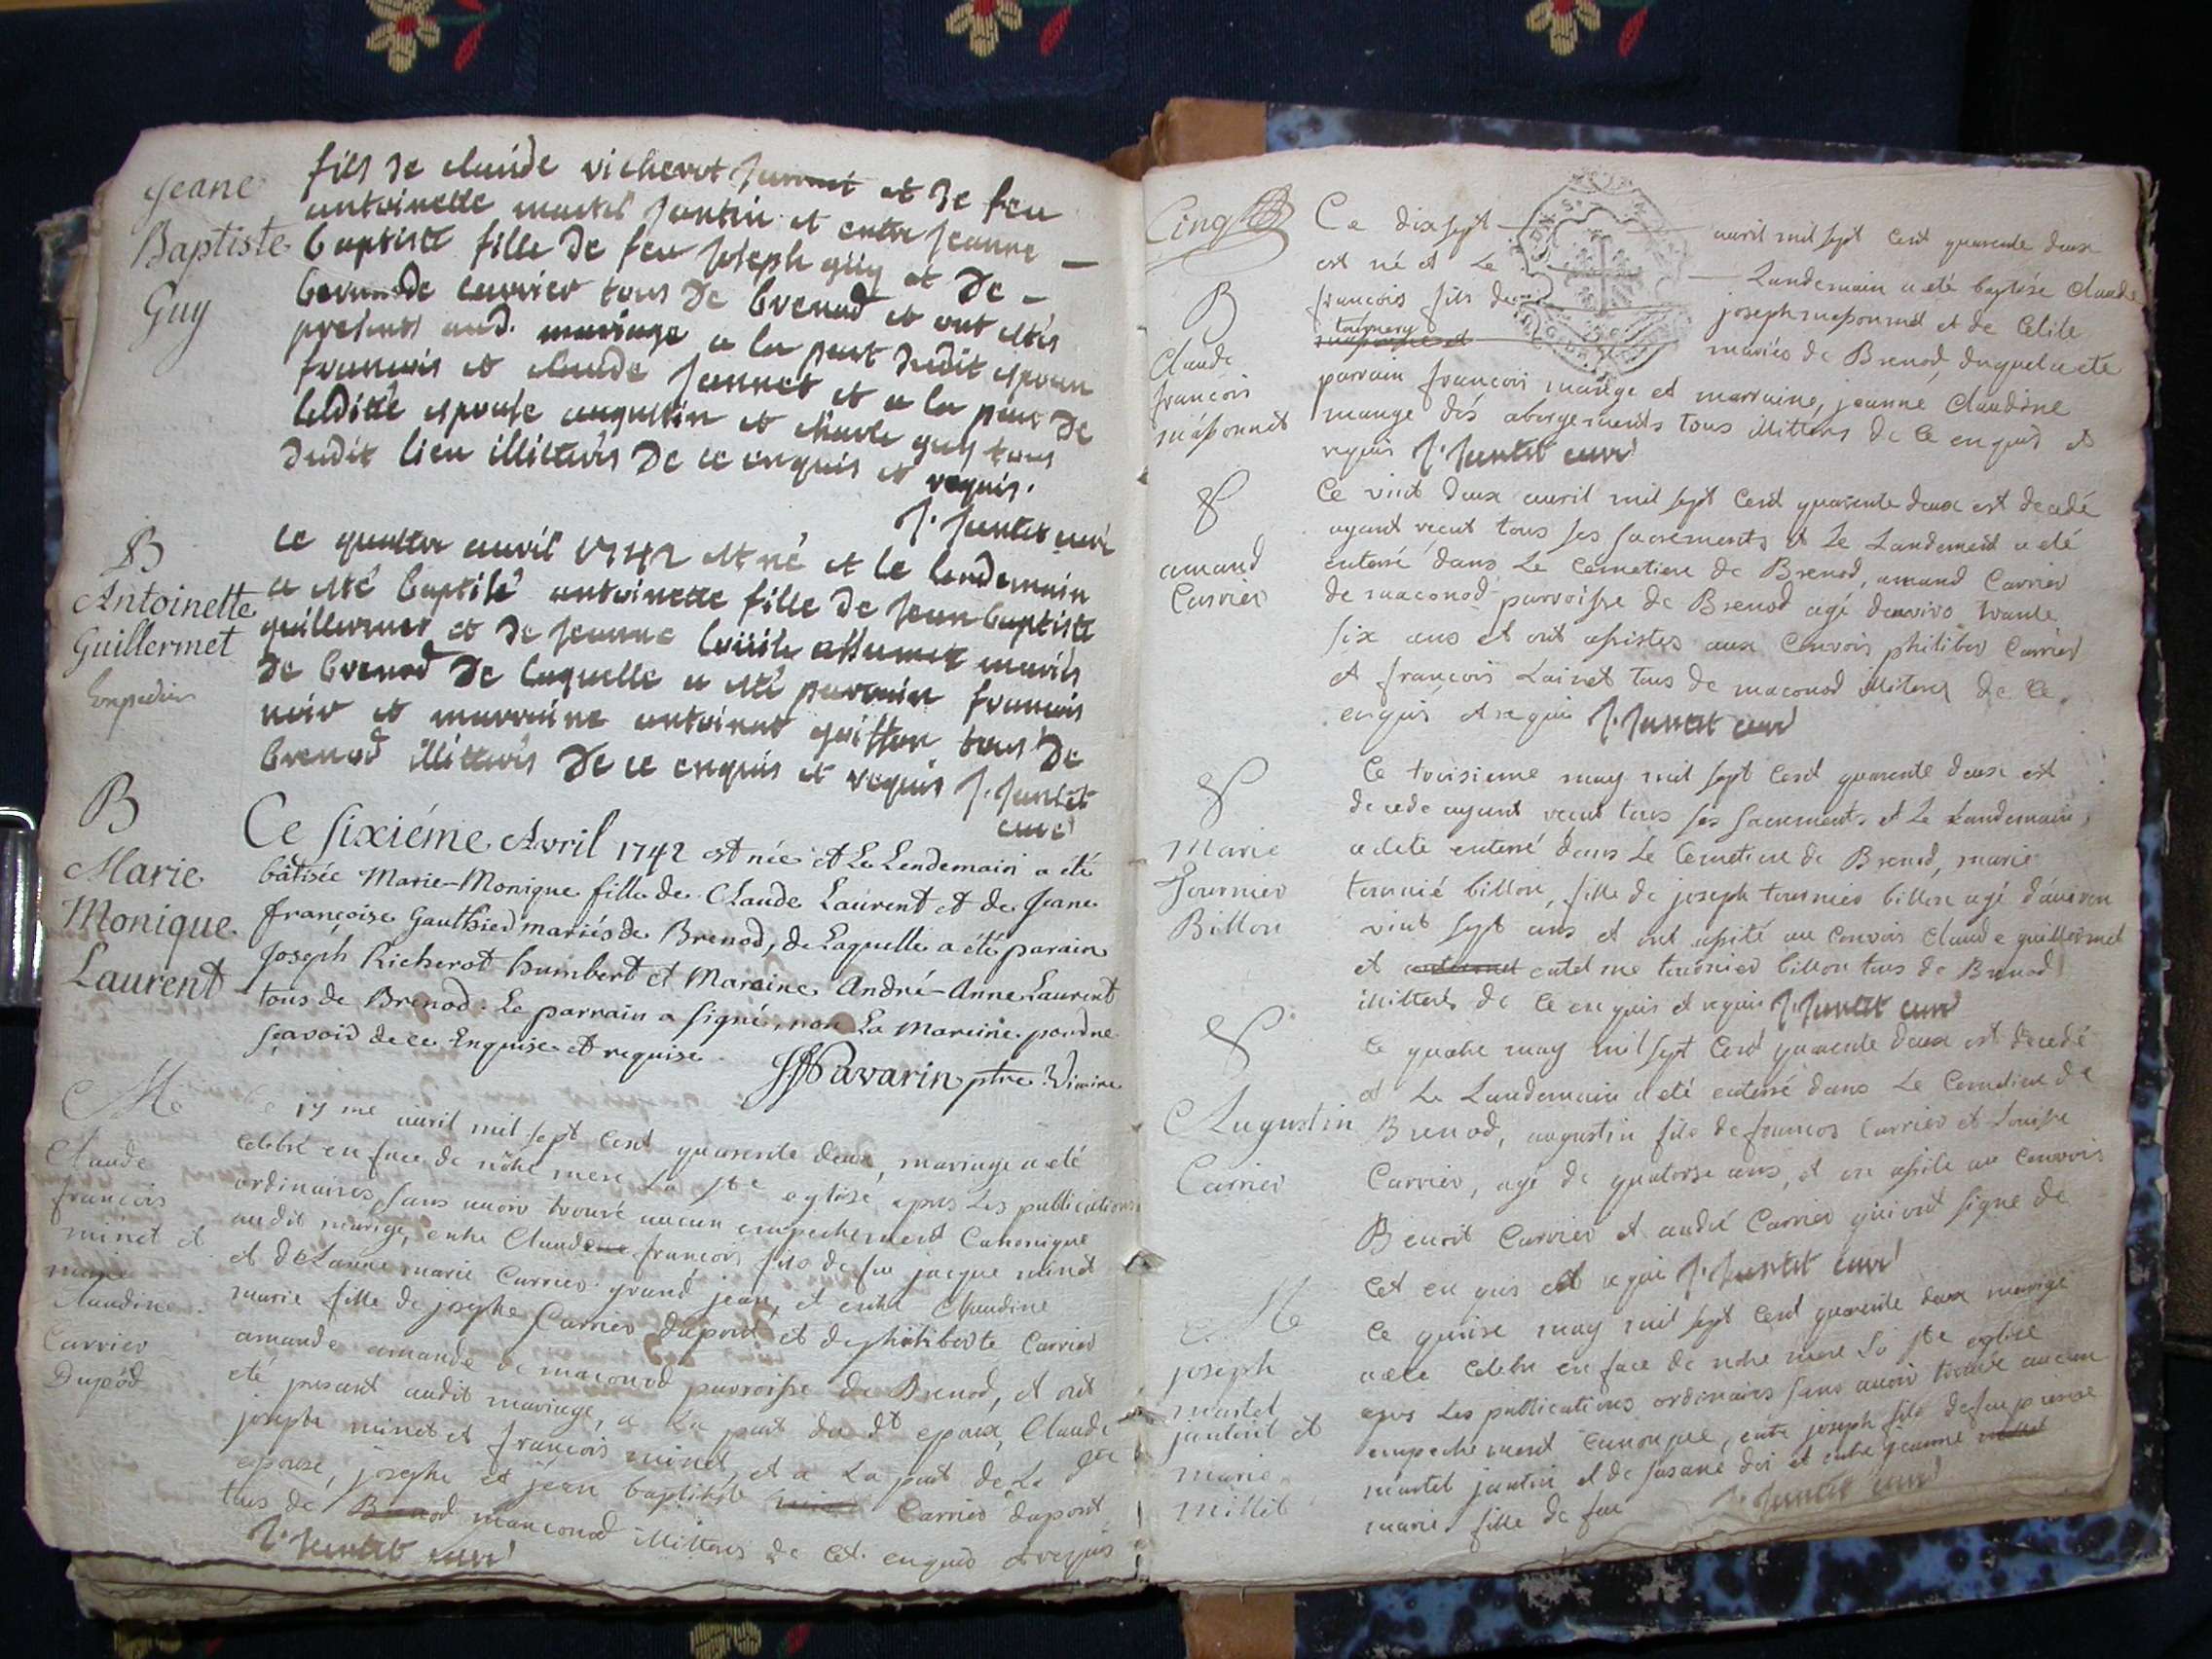 Jeane
Baptiste
Guy
fils de claude richerot et de feu
antoinette martel jantin et entre jeanne
baptiste fille de feu joseph guy et de
carrier tous de brenod et ont étés
presents aud. mariage a la part dudit epoux
francois et claude jannet et a la part de
laditte epouse augustin et charle guy tous
dudit lieu illiterés de ce enquis et requis.
J. Jantet curé
B
Antoinette
Guillermet
Le quatre avril 1742 est né et le lendemain
a eté baptisé antoinette fille de jean baptiste
guillermet et de jeanne mariés
de brenod de laquelle a eté parrain francois
noir et marraine antoinet tous de
brenod illiterés de ce enquis et requis J. Jantet
curé
B
Marie
Monique
Laurent
Ce sixiéme Avril 1742 est née et Le Lendemain a été
bâtisée Marie-Monique fille de Claude Laurent et de Jeane
françoise Gauthier mariés de Brenod, de Laquelle a été parain
Joseph Richerot humbert et Maraine André-Anne Laurent
tous de Brenod. Le parrain a signé, non La Mareine pour ne
sçavoir de ce Enquise et requise
Pavarin ptre Vicaire
M
Claude
francois
minet et
marie
claudine
Carrier
Dupód
17me auril mil sept cent quarente deux, mariage a eté
celebré en face de nôtre mere La Ste eglise, apres Les publications
ordinaires, sans auoir trouvé aucun empechement Canonique
audit mariage, entre Claude françois fils de feu jacque minet
et de Lanne marie Carrier grand jean, et entre Claudine
marie fille de josephe Carrier dupont et de philiberte Carrier
amande amande de maconod parroisse de Brenod, et ont
eté present audit mariage, a La part du dt epoux, Claude
joseph minet et françois minet, et a La part de La dte
epouse, josephe et jean baptiste Carrier dupont
tous de Brenod maconod illiterés de Cet enquis et requis
J. Jantet curé
Cinq
B
Claude
françois
maponnét
Ce dix sept auril mil sept Cent quarente deux
est né et Le Landemain a eté baptisé Claude
francois fils de joseph maponnét et de Cecile
tournery mariés de Brenod, duquel a eté
parrain françois mange et marraine, jeanne Claudine
mange des abergements tous illiterés de Ce enquis et
requis J. Jantet curé
amand
Carrier
Ce vint deux auril mil sept Cent quarente deux est decedé
ayant recut tous ses sacrements et Le Landemain a eté
enterré dans Le Cemetiere de Brenod, amand Carrier
de maconod parroisse de Brenod agé danviro trante
six ans et ont assistes aux Convois philiber Carrier
et françois Lainet tous de maconod illiterés de Ce
enquis et requis J. Jantet curé
Marie
Tournier
Billon
Ce troisieme may mil sept Cent quarente deux est
decede ayant recut tous ses sacrements et Le Landemain
a eté enterré dans Le Cemetiere de Brenod, marie
tournié billon, fille de joseph tournier billon agé d'environ
vint sept ans et ont assité au Convois Claude guillermet
et entelme tournier billon tous de Brenod
illiterés de Ce enquis et requis J. Jantet curé
Augustin
Carrier
Ce quatre may mil sept Cent quarente deux est decedé
et Le Landemain a eté enterré dans Le Cemetiere de
Brenod, augustin fils de francois Carrier et Louise
Carrier, agé de quatorse ans, et on assité au Convois
Benoit Carrier et andré Carrier qui ont signe de
Cet enquis et requi J. Jantet curé
M
joseph
martel
jantin et
marie
millet
Ce quinse may mil sept Cent quarente deux mariage
a eté Celebré en face de notre mere La Ste eglise
apres Les publications ordinaires sans auoir trouvé aucun
empechement Canonique, entre joseph fils de feu pierre
martel jantin et de susane et entre jeanne
marie fille de feu J. Jantet curé